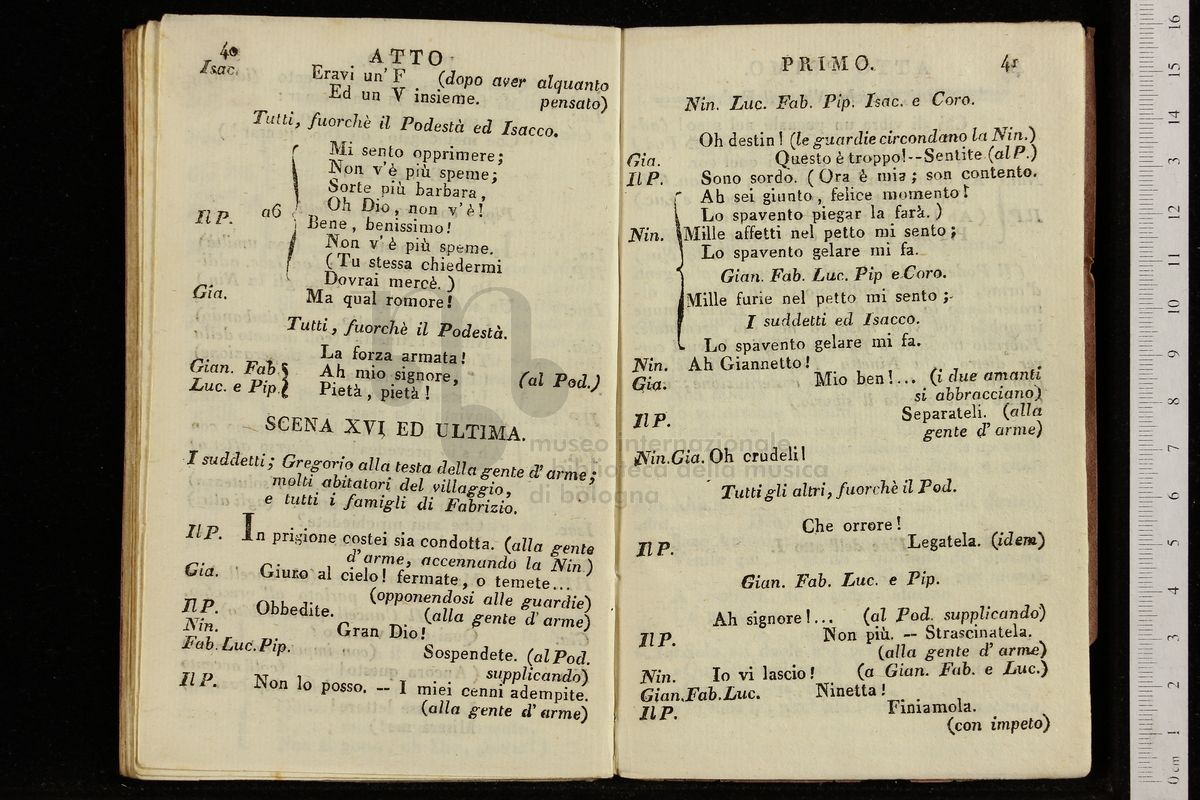 40
ATTO
Isac. Eravi un' F (dopo aver alquanto
Ed un V insieme. pensato)
Tutti, fuorchè il Podestà ed Isacco.
Mi sento opprimere;
Non v'è più speme;
Sorte più barbara,
a6 Oh Dio, non v'è!
Il P. Bene, benissimo!
Non v'è più speme.
(Tu stessa chiedermi
Dovrai mercè.)
Gia. Ma qual romore!
Tutti, fuorchè il Podestà.
La forza armata!
Gian. Fab. Ah mio signore, (al Pod.)
Luc. e Pip. Pietà, pietà!
SCENA XVI ED ULTIMA.
I suddetti; Gregorio alla testa della gente d'arme;
molti abitatori del villaggio,
e tutti i famigli di Fabrizio.
Il P. In prigione costei sia condotta. (alla gente
d'arme, accennando la Nin.)
Gia. Giuro al cielo! fermate, o temete...
(opponendosi alle guardie)
Il P. Obbedite. (alla gente d'arme)
Nin. Gran Dio!
Fab. Luc. Pip. Sospendete. (al Pod.
supplicando)
Il P. Non lo posso. -- I miei cenni adempite.
(alla gente d'arme)
PRIMO. 41
Nin. Luc. Fab. Pip. Isac. e Coro.
Oh destin! (le guardie circondano la Nin.)
Gia. Questo è troppo!--Sentite (al P.)
Il P. Sono sordo. (Ora è mia; son contento.
Ah sei giunto, felice momento!
Lo spavento piegar la farà.)
Nin. Mille affetti nel petto mi sento;
Lo spavento gelare mi fa.
Gian. Fab. Luc. Pip e Coro.
Mille furie nel petto mi sento;
I suddetti ed Isacco.
Lo spavento gelare mi fa.
Nin. Ah Giannetto!
Gia. Mio ben!... (i due amanti
si abbracciano)
Il P. Separateli. (alla
gente d'arme)
Nin. Gia. Oh crudeli!
Tutti gli altri, fuorchè il Pod.
Che orrore!
Il P. Legatela. (idem)
Gian. Fab. Luc. e Pip.
Ah signore!... (al Pod. supplicando)
Il P. Non più. -- Strascinatela.
(alla gente d'arme)
Nin. Io vi lascio! (a Gian. Fab. e Luc.)
Gian. Fab. Luc. Ninetta!
Il P. Finiamola.
(con impeto)
museo internazionale
biblioteca della musica
di bologna
0 cm 1 2 3 4 5 6 7 8 9 10 11 12 13 14 15 16